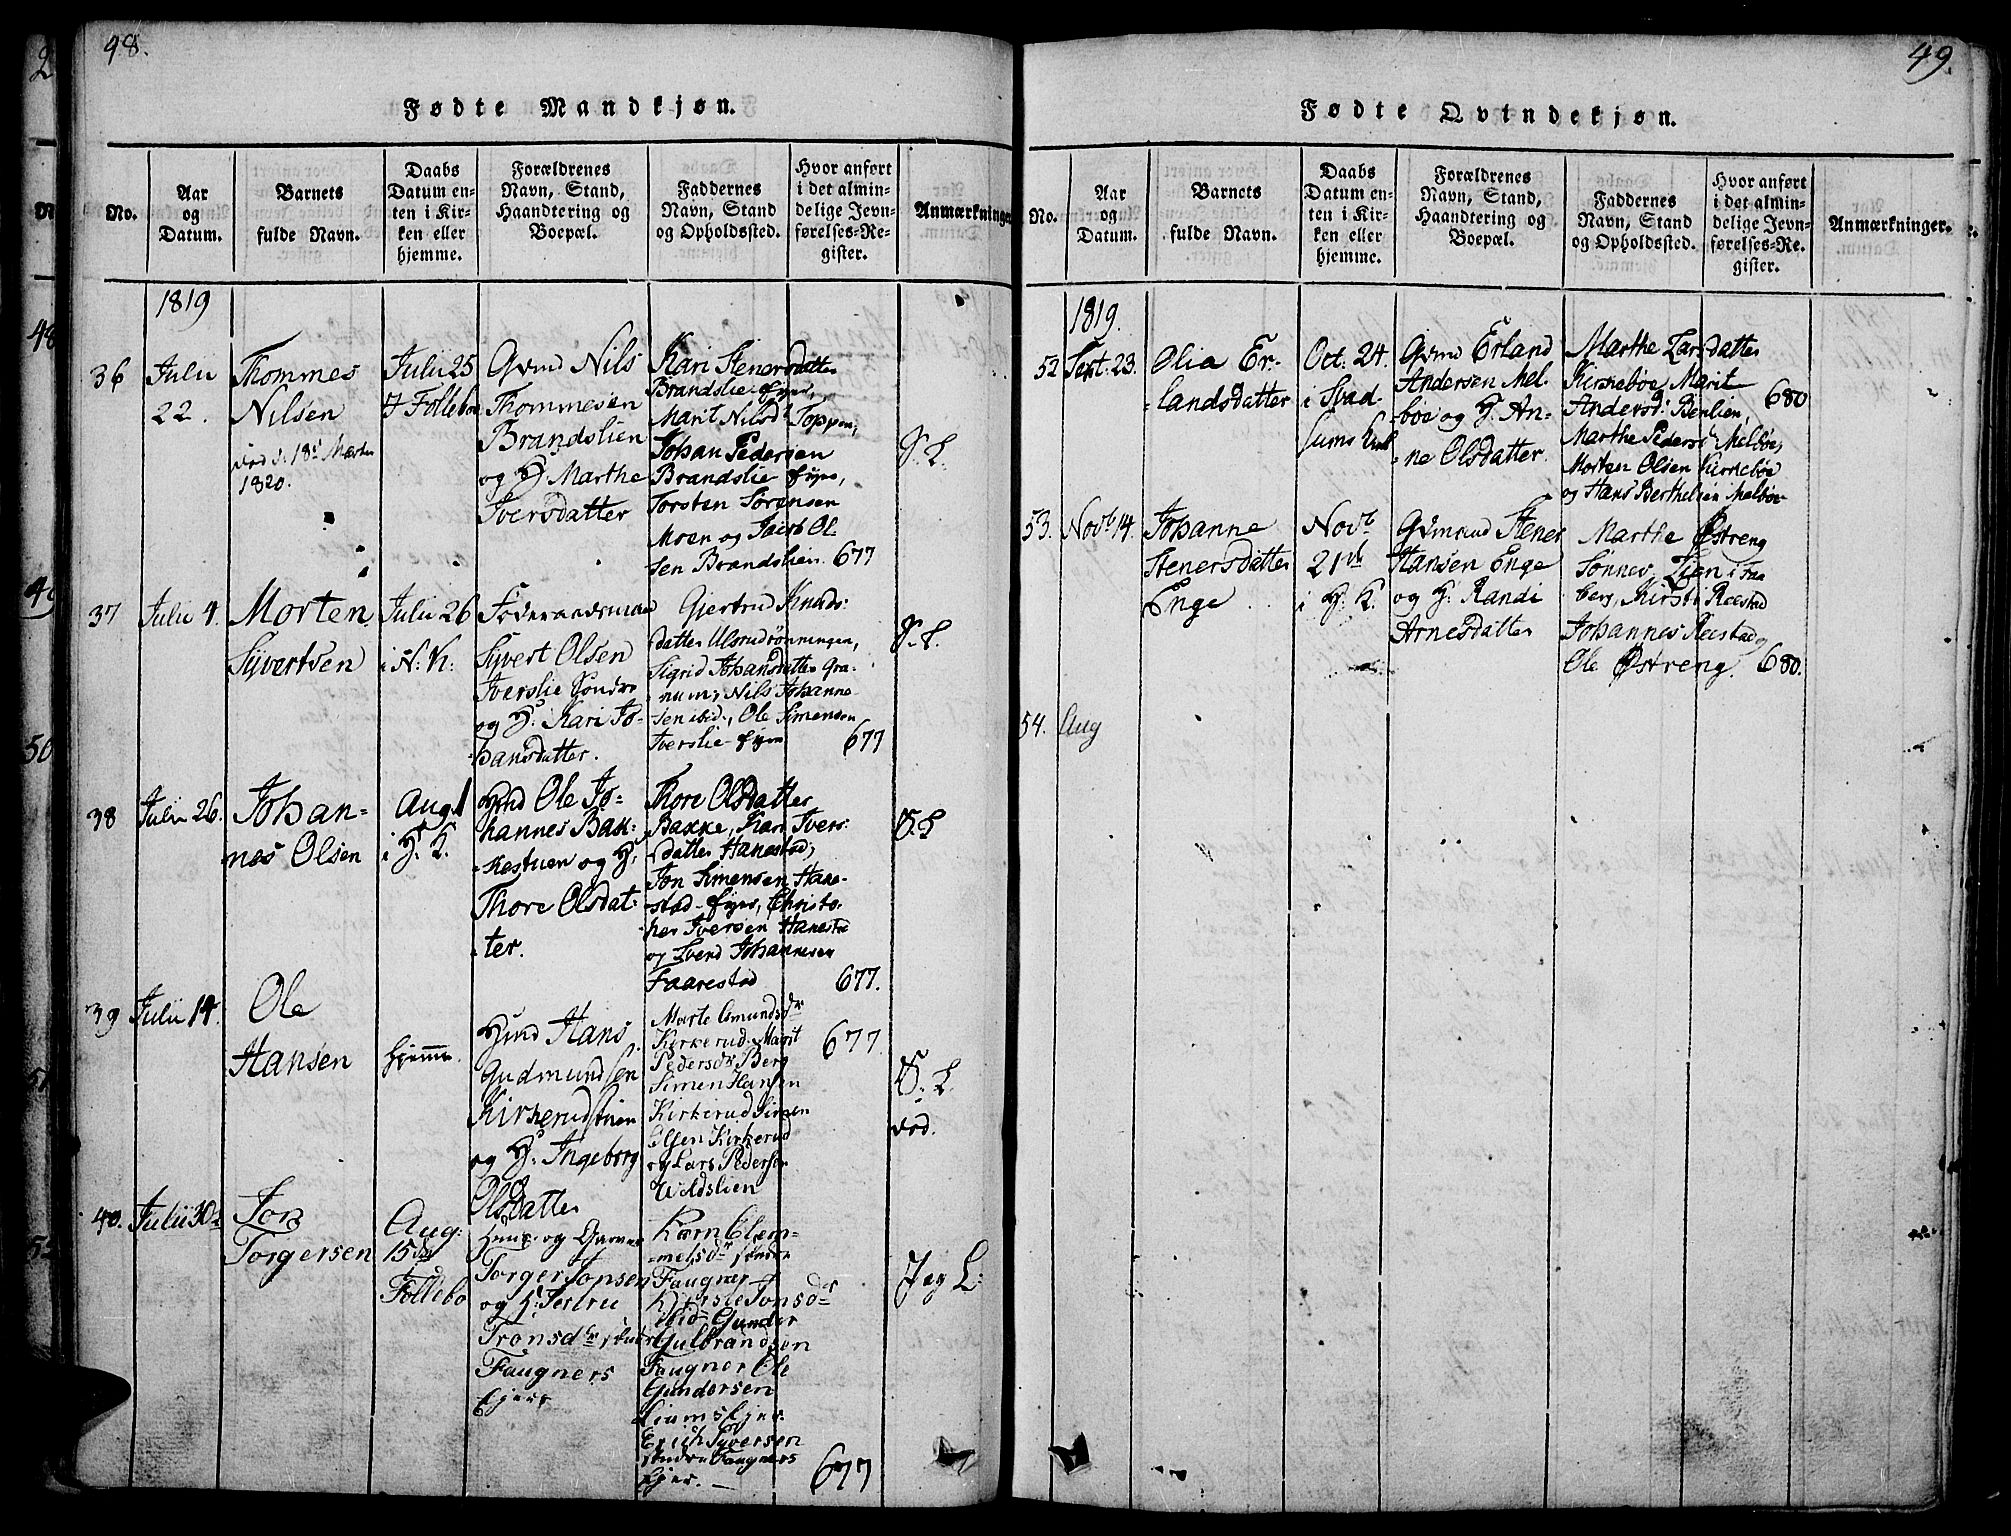 48.
Fødte Mandkjøn.
No.
Aar
og
Datum.
Barnets
fulde Navn.
Daabs
Datum en-
ten i Kir-
ken eller
hjemme.
Forældrenes
Navn, Stand,
Haandtering og
Boepæl.
Faddernes
Navn, Stand
og Opholdssted.
Hvor anført
i det almin-
delige Jevn-
førelses-Re-
gister.
Anmærkninger
1819
36
Julii
22.
Thommes
Nilsen
død d. 18de Martii
1820.
Julii 25
Follebo
Gvmd Nils
Thommesen
Brandslien
og H Marthe
Iversdatter
Kari Stenersdatter
Brandslie-Ejer,
Marit Nilsdr Toppen,
Johan Pedersen
Brandslie Ejer,
Torsten Sörensen
Moen og Jacob Ol-
sen Brandslien. 677
S. L.
37
Julii 4.
Morten
Sÿvertsen
Julii 26
i N. K:
Föderaadsmand
Syvert Olsen
Iverslie Söndre
og H: Kari Jo-
hansdatter.
Gjertrud Knuds-
datter Ulsrudrönningen,
Sigrid Johansdatter Gra-
num, Nils Johanne-
sen ibid., Ole Simensen
Iverslie-Ejer
677
S. L.
38
Julii 26.
Johan-
nes Olsen
Aug 1
i H. K.
Hmd Ole Jo-
hannes Bak-
kestuen og H:
Thore Olsdat-
ter.
Thore Olsdatter
Bakke, Kari Ivers-
datter Hanestad,
Jon Simensen Hane-
stad-Ejer, Christo-
her Iversen Hanestad
og Svend Johannesen
Faarestad
677.
S. L
39
Julii 14.
Ole
Hansen
hjemme.
Hmd Hans
Gudmundsen
Kirkerudstuen
og H: Ingeborg
Olsdatter
Marte Amundsdr
Kirkerud Marit
Pedersdr Berg
Simen Hansen
Kirkerud Simen
Olsen Kirkerud
og Lars Pedersen
Woldslien
677.
S. L.
död.
40.
Julii 30
Jon
Torgersen
Aug:
15de
Follebo
og
Torger Jonsen
og H: Jertru
Tronsdr
Faugners
Ejere
Karn Clem-
melsdr
Faugner
Kjersle Jonsdr
ibid Gunder
Gulbrandsen
Faugner Ole
Gundersen
Liums Ejer.
Erich Syversen
Faugners
Ejer.
677
J og L:
49.
Fødte Qvindekjøn.
No.
Aar
og
Datum.
Barnets
fulde Navn.
Daabs
Datum en-
ten i Kir-
ken eller
hjemme.
Forældrenes
Navn, Stand,
Haandtering og
Boepæl.
Faddernes
Navn, Stand
og Opholdssted.
Hvor anført
i det almin-
delige Jevn-
førelses-Re-
gister.
Anmærkninger.
1819.
52
Sept. 23.
Olia Er-
landsdatter
Oct. 24
i Svad-
sums Kirk
Gvmd Erland
Andersen Mel-
böe og H. An-
ne Olsdatter.
Marthe Larsdatter
Kirkeböe Marit
Andersd: Benlien,
Marthe Pedersd Melböe,
Morten Olsen Kirkeböe
og Hans Berthelsen Melböe
680
53.
Novb 14.
Johanne
Stenersdatter
Enge
Novb
21de
i H. K.
Gvmand Stener
Hansen Enge
og H: Randi
Arnesdatter
Marthe Østreng
Sønnev Lien i Faa
berg, Kirsti Reestad
Johannes Reestad og
Ole Østreng.
680.
54.
Aug